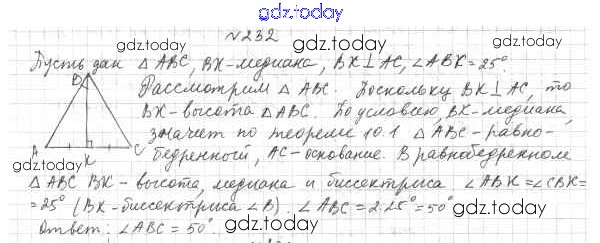 gdz.today
№232
Пусть дан △ABC, BK-медиана, BK⊥AC, ∠ABK=25°
Рассмотрим △ABC. Поскольку BK⊥AC, то
BK-высота △ABC. По условию, BK-медиана,
значит по теореме 10.1 △ABC-равно-
бедренный, AC-основание. В равнобедренном
△ABC BK- высота, медиана и биссектриса. ∠ABK=∠CBK=
=25° (BK-биссектриса ∠B). ∠ABC=2·25°=50°
Ответ: ∠ABC = 50°.
B
A
K
C
gdz.today
gdz.today
gdz.today
gdz.today
gdz.today
gdz.today
gdz.today
gdz.today
gdz.today
gdz.today